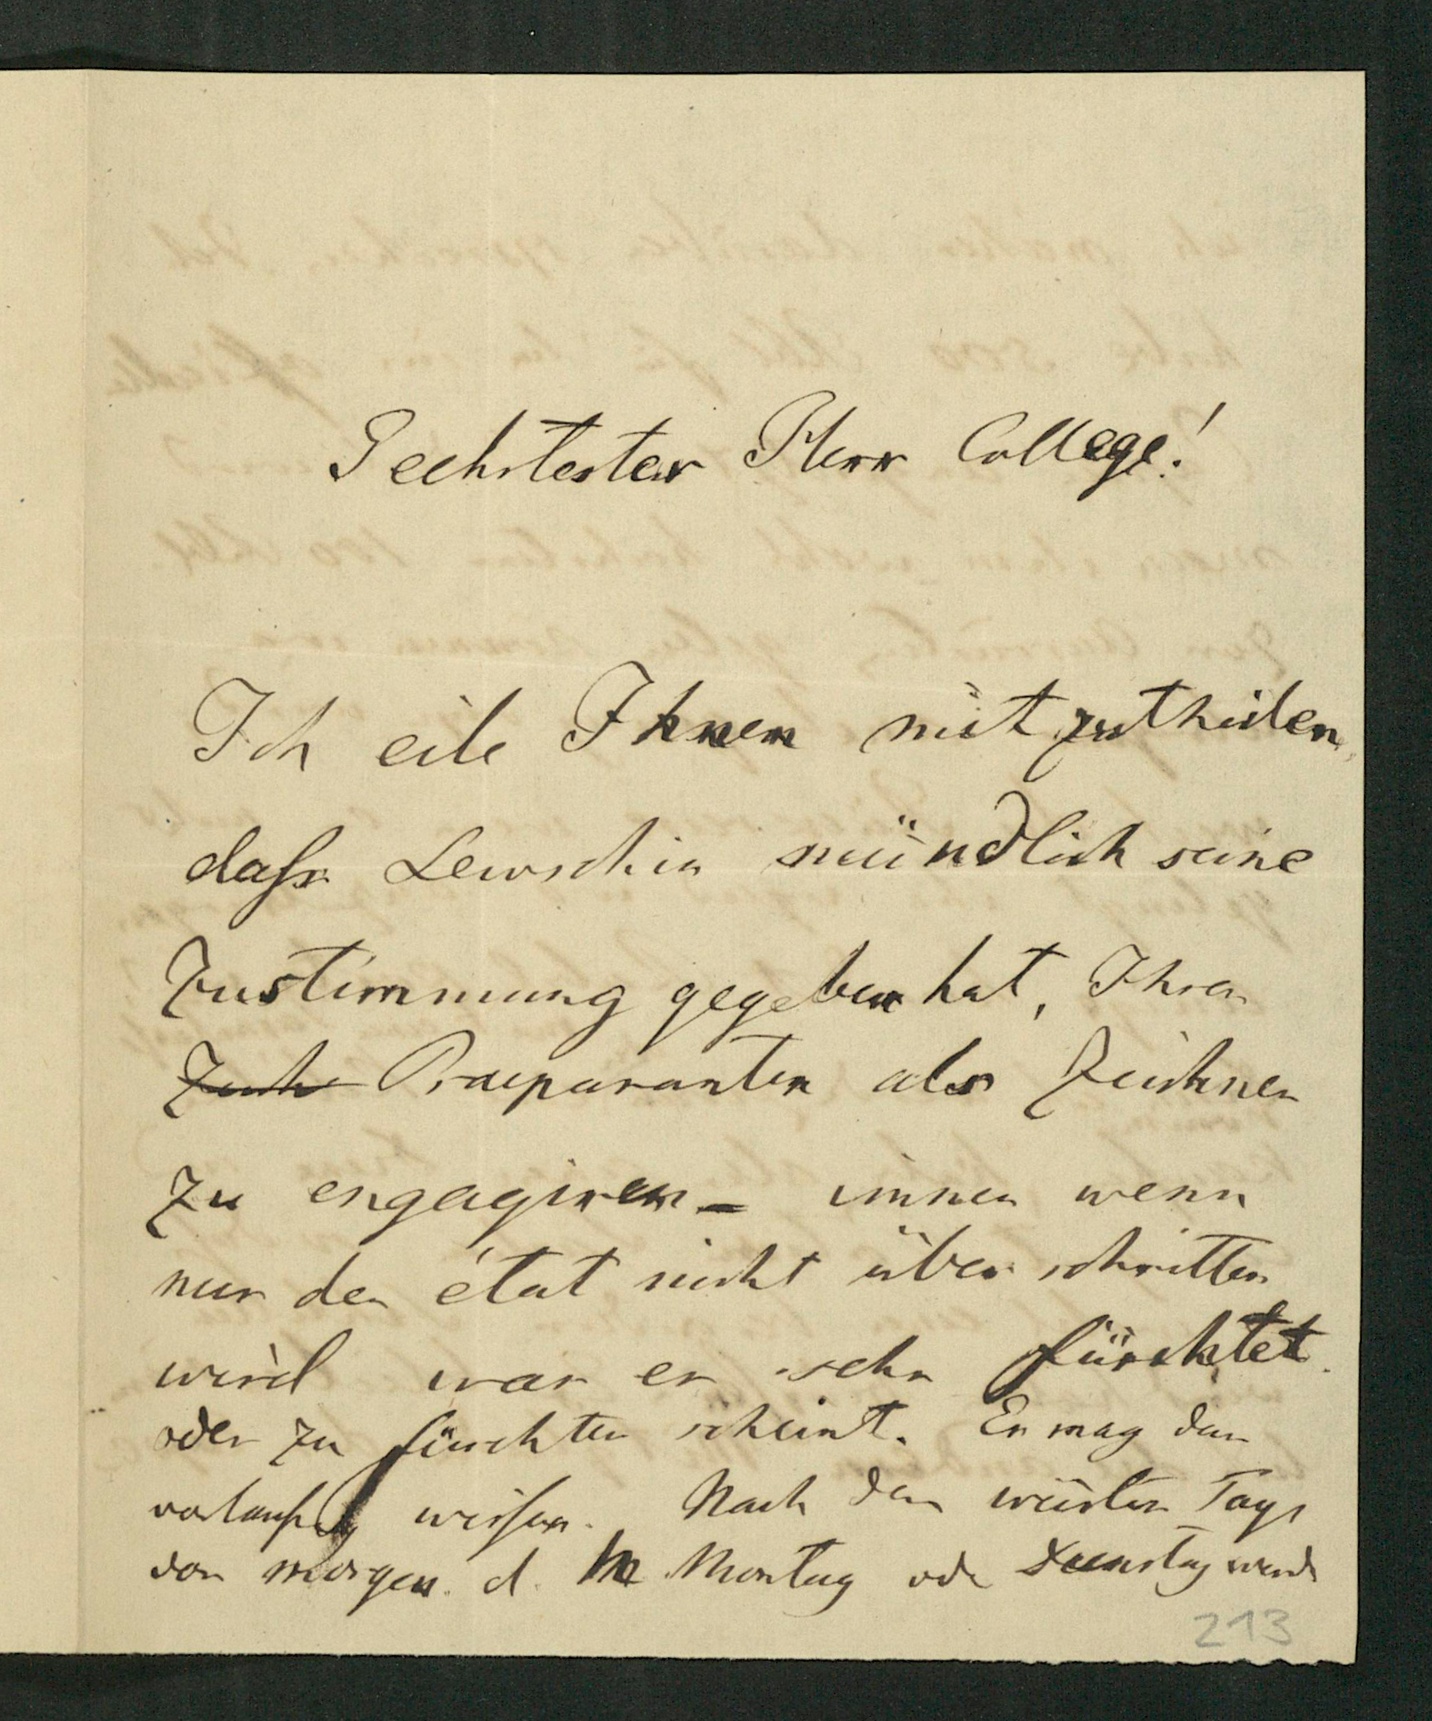 Geehrtester Herr College!
Ich eile Ihnen mitzutheilen,
daſs Lewschin mündlich seine
Zustimmung gegeben hat, Ihren
Zeich Praeparanten als Zeichner
zu engagiren – immer wenn
nur der état nicht überschritten
wird was er sehr fürchtet
oder zu fürchten scheint. Er mag das
vorläufig wissen. Nach dem Tage
von morgen d. M Montag oder Dienstag werde
213